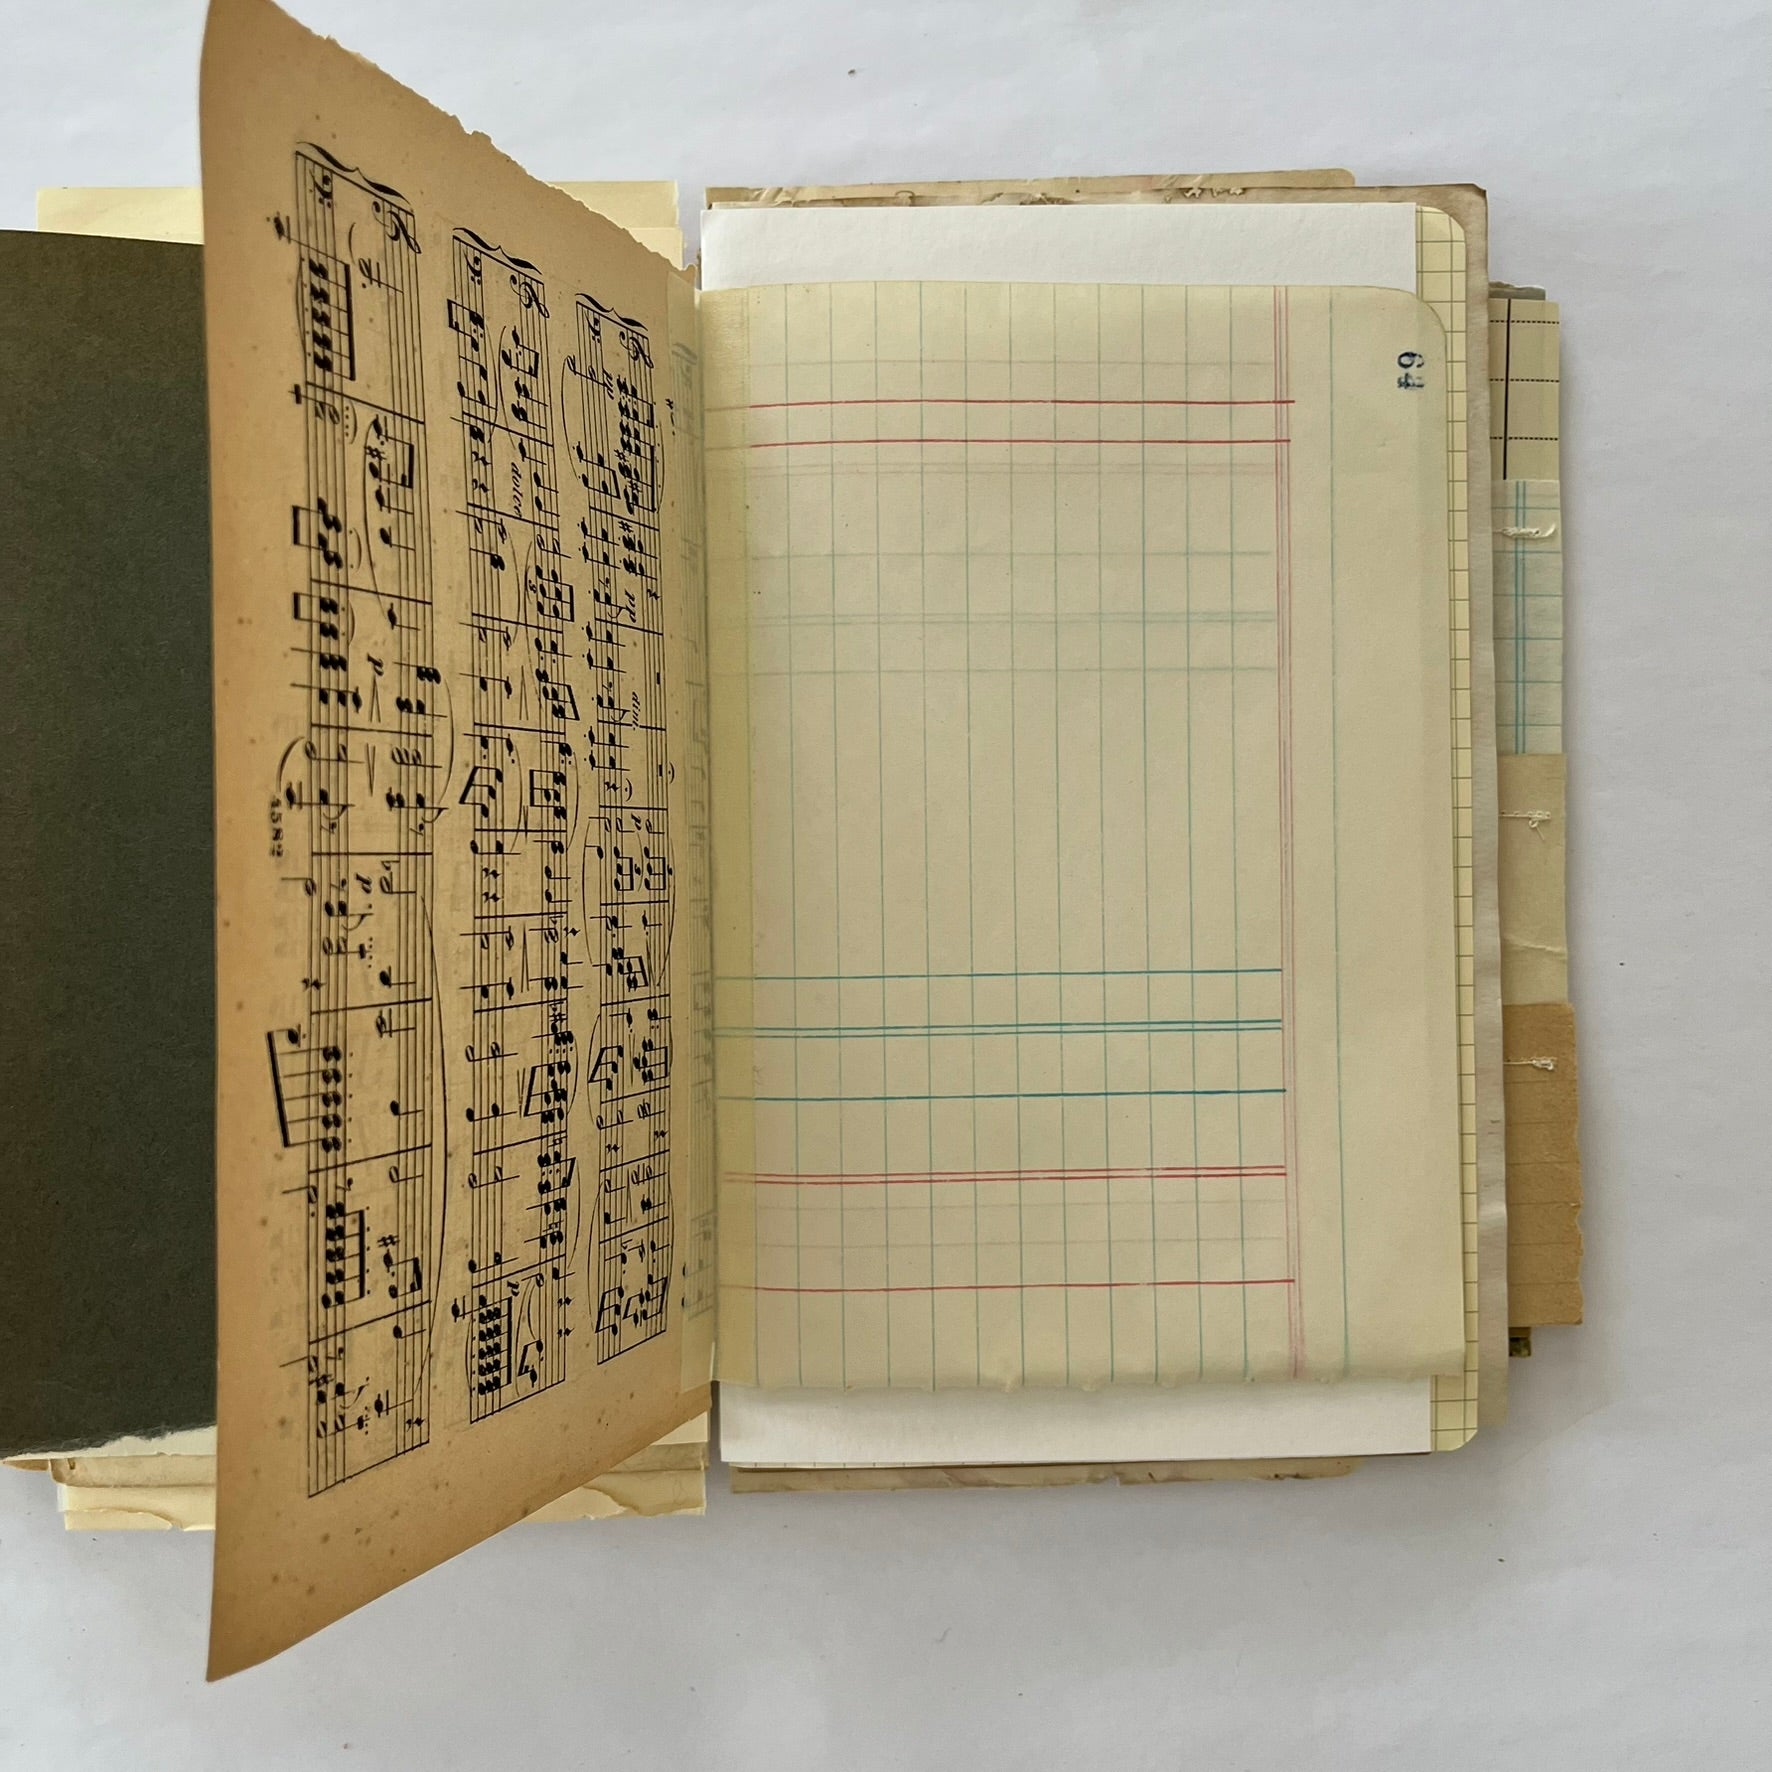 pp pp dim. p
dolce p
p p
64